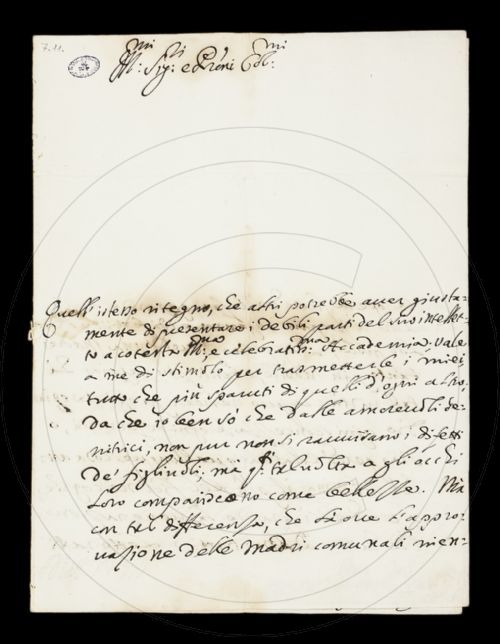 7.11.
Ill:mi Sig:ri e P̃roni Col:mi
Quell' istesso ritegno, che altri potrebbe aver giusta=
mente di presentare i debili parti del suo intellet=
to a cotesta Ill:ma e celebratiss:ma Accademia vale
a me di stimolo per trasmetterle i miei
tutto che più sparuti di quelli d'ogni altro,
da che io ben sò che dalle amorevoli ge=
nitrici, non pur non si ravvisano i difetti
de' figliuoli, ma talvolta a gli occhi
loro compariscono come bellezze. Mà
con tal differenza, che dove l'appro=
vazione delle Madri comunali vien=